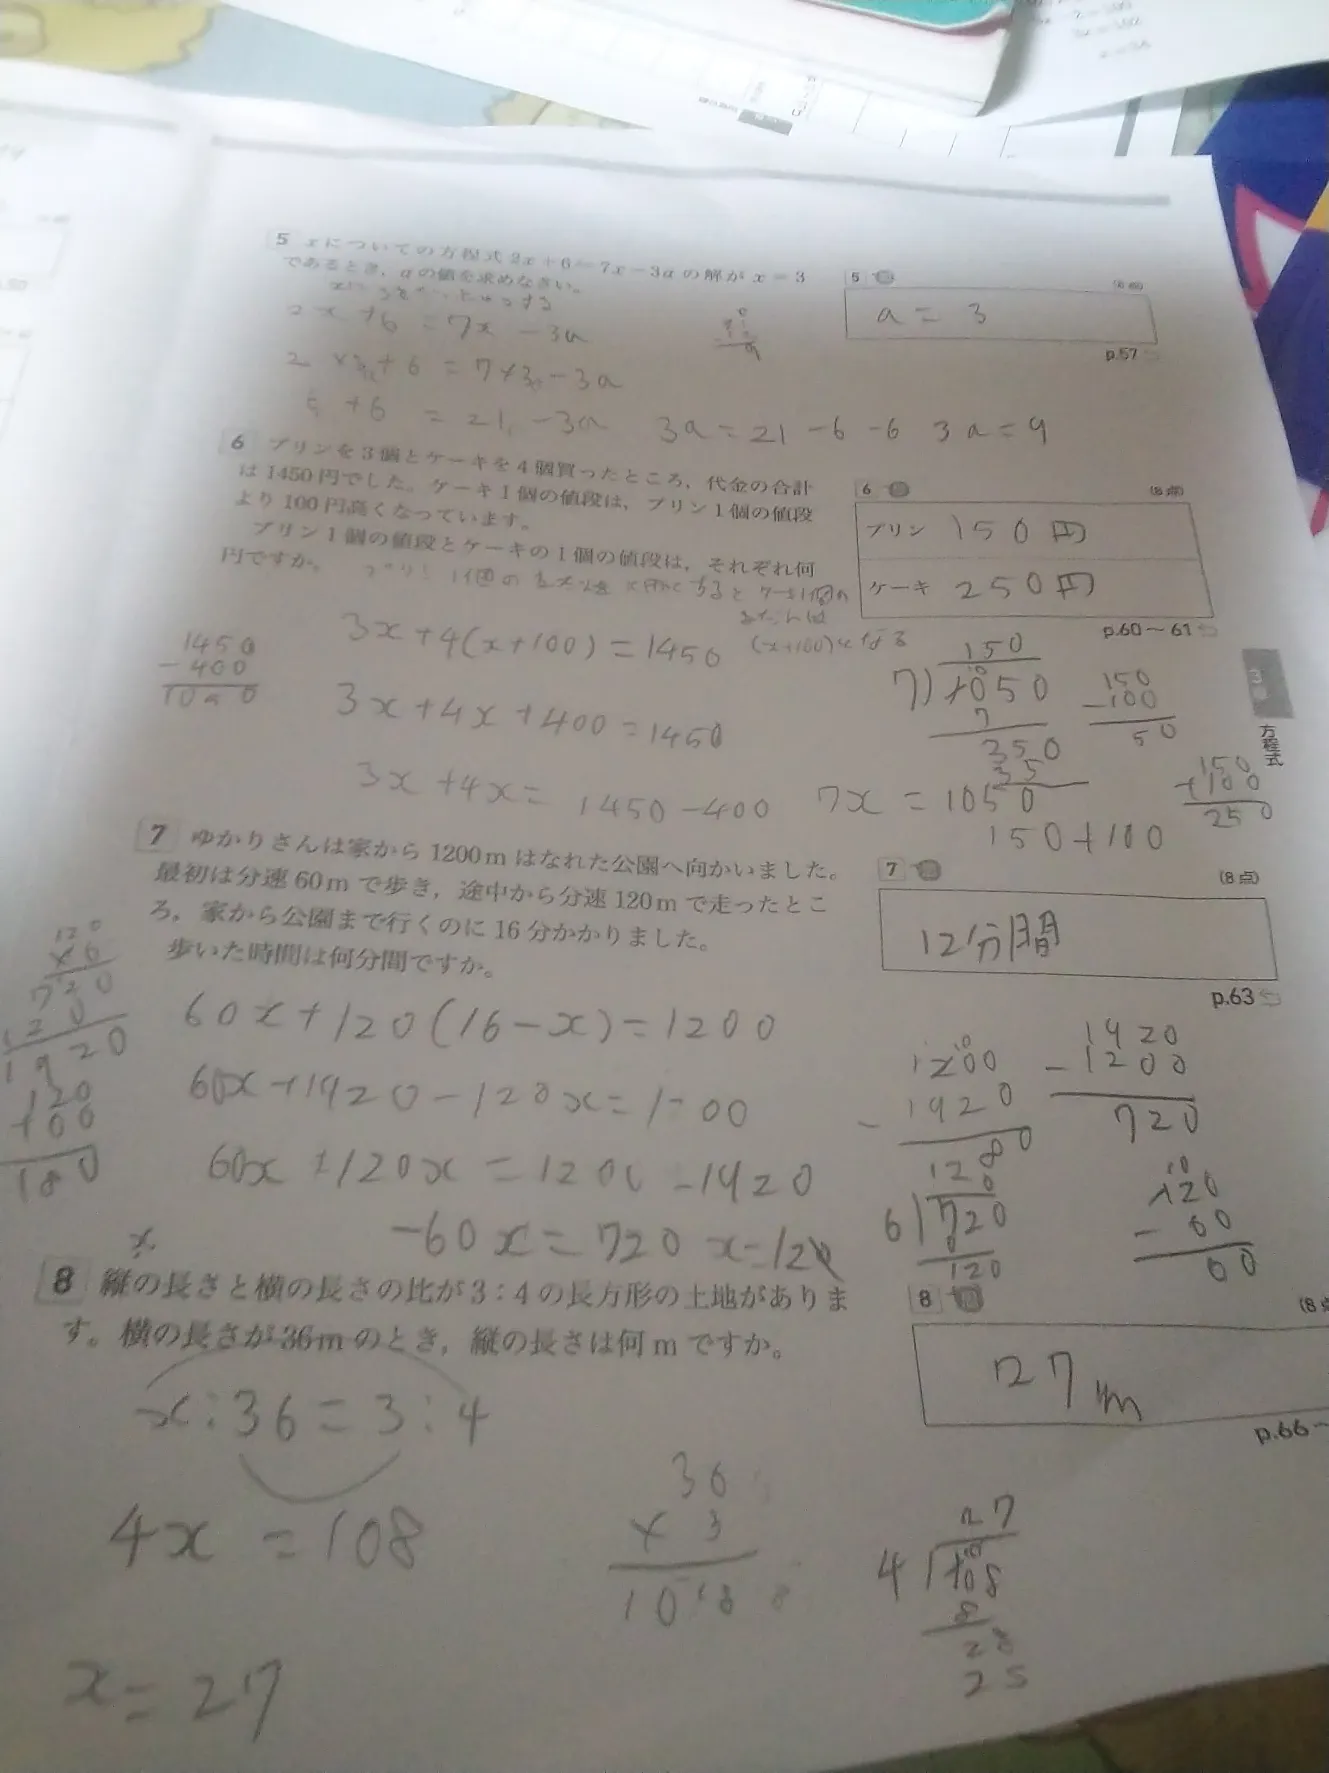 5 xについての方程式 2x+6=7x-3a の解が x=3
であるとき，aの値を求めなさい。
2x+6=7x-3a
2×3+6=7×3-3a
+6=21-3a 3a=21-6-6 3a=9
5 (8点)
a=3
p.57
6 プリンを3個とケーキを4個買ったところ，代金の合計
は1450円でした。ケーキ1個の値段は，プリン1個の値段
より100円高くなっています。
プリン1個の値段とケーキの1個の値段は，それぞれ何
円ですか。
(x+100)になる
6 (8点)
プリン 150円
ケーキ 250円
p.60～61
1450
-400
1050
3x+4(x+100)=1450
3x+4x+400=1450
3x+4x=1450-400 7x=1050
150+100
150
7)1050
7
350
35
150
-100
50
150
+100
250
3章 方程式
7 ゆかりさんは家から1200mはなれた公園へ向かいました。
最初は分速60mで歩き，途中から分速120mで走ったとこ
ろ，家から公園まで行くのに16分かかりました。
歩いた時間は何分間ですか。
7 (8点)
12分間
p.63
120
×6
720
120
1920
120
+60
180
60x+120(16-x)=1200
60x+1920-120x=1200
60x+120x=1200-1920
-60x=720 x=12
1200
-1920
1280
1920
-1200
720
120
6)720
120
120
-60
60
8 縦の長さと横の長さの比が3:4の長方形の土地がありま
す。横の長さが36mのとき，縦の長さは何mですか。
8 (8点
27m
p.66～
x:36=3:4
4x=108
x=27
36
×3
108
27
4)108
8
28